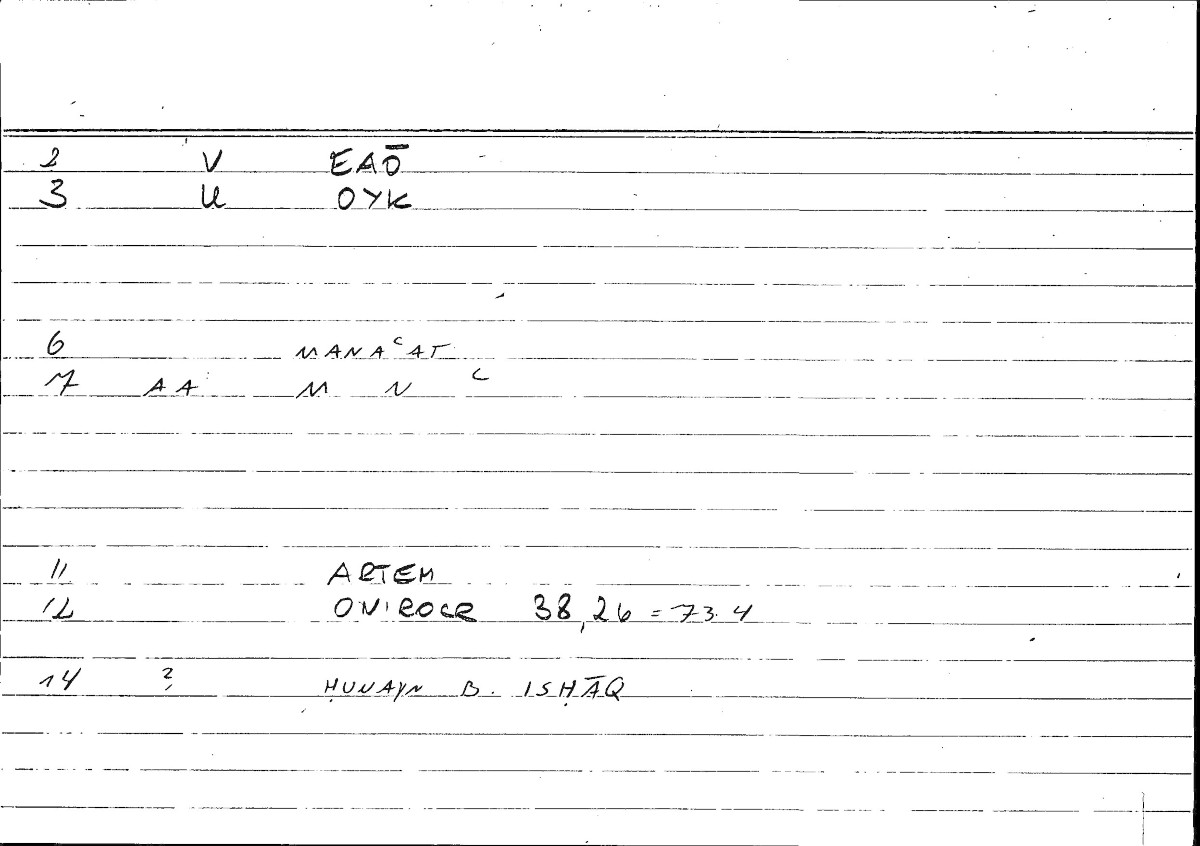 2 V EAŌ
3 U OYK
6 MANAʿAT
7 AA M N ʿ
11 ARTEM
12 ONIROCR 38,26 = 73.4
14 ? ḤUNAYN B. ISḤĀQ